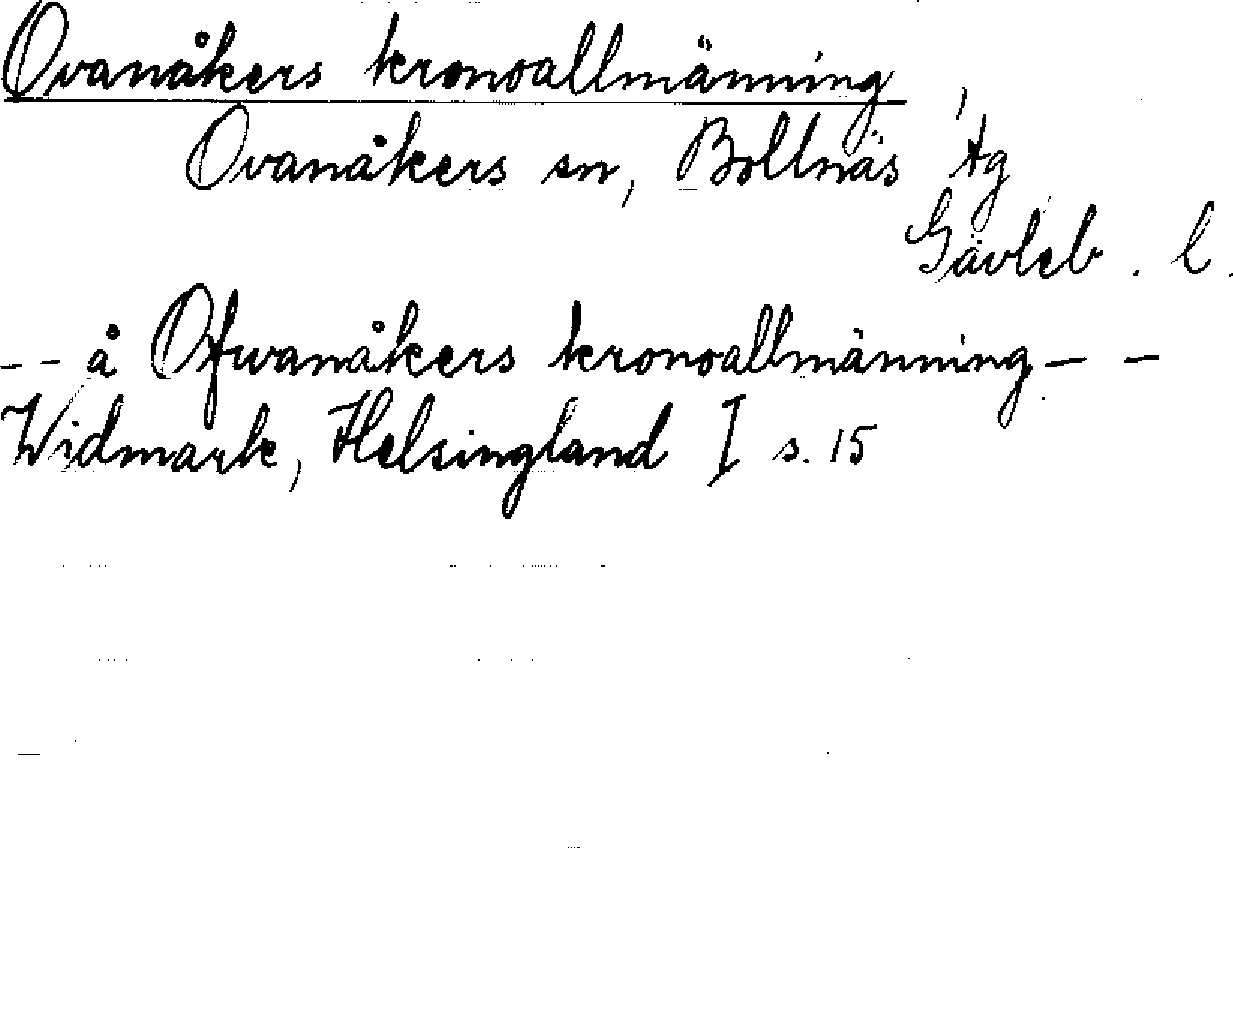 Ovanåkers kronoallmänning,
Ovanåkers sn, Bollnäs tg
Gävleb. l.
-- å Ofvanåkers kronoallmänning - -
Widmark, Helsingland I s. 15